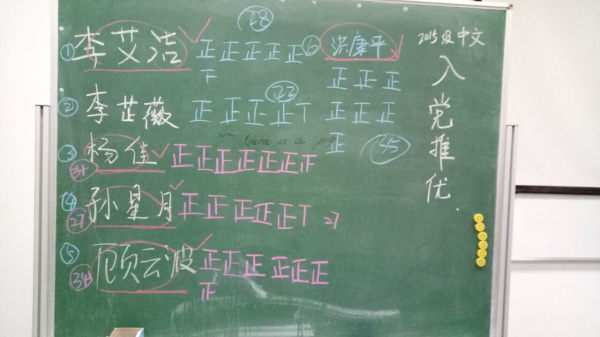 2015级中文
入党推优.
28
① 李艾洁 正正正正正
下
② 李芷薇 正正正正T 22
③ 杨佳 正正正正正正下
34
④ 孙星月 正正正正正T 27
27
⑤ 顾云波 正正正正正正
34 正
⑥ 洪康平
正正正
正正正
正 45